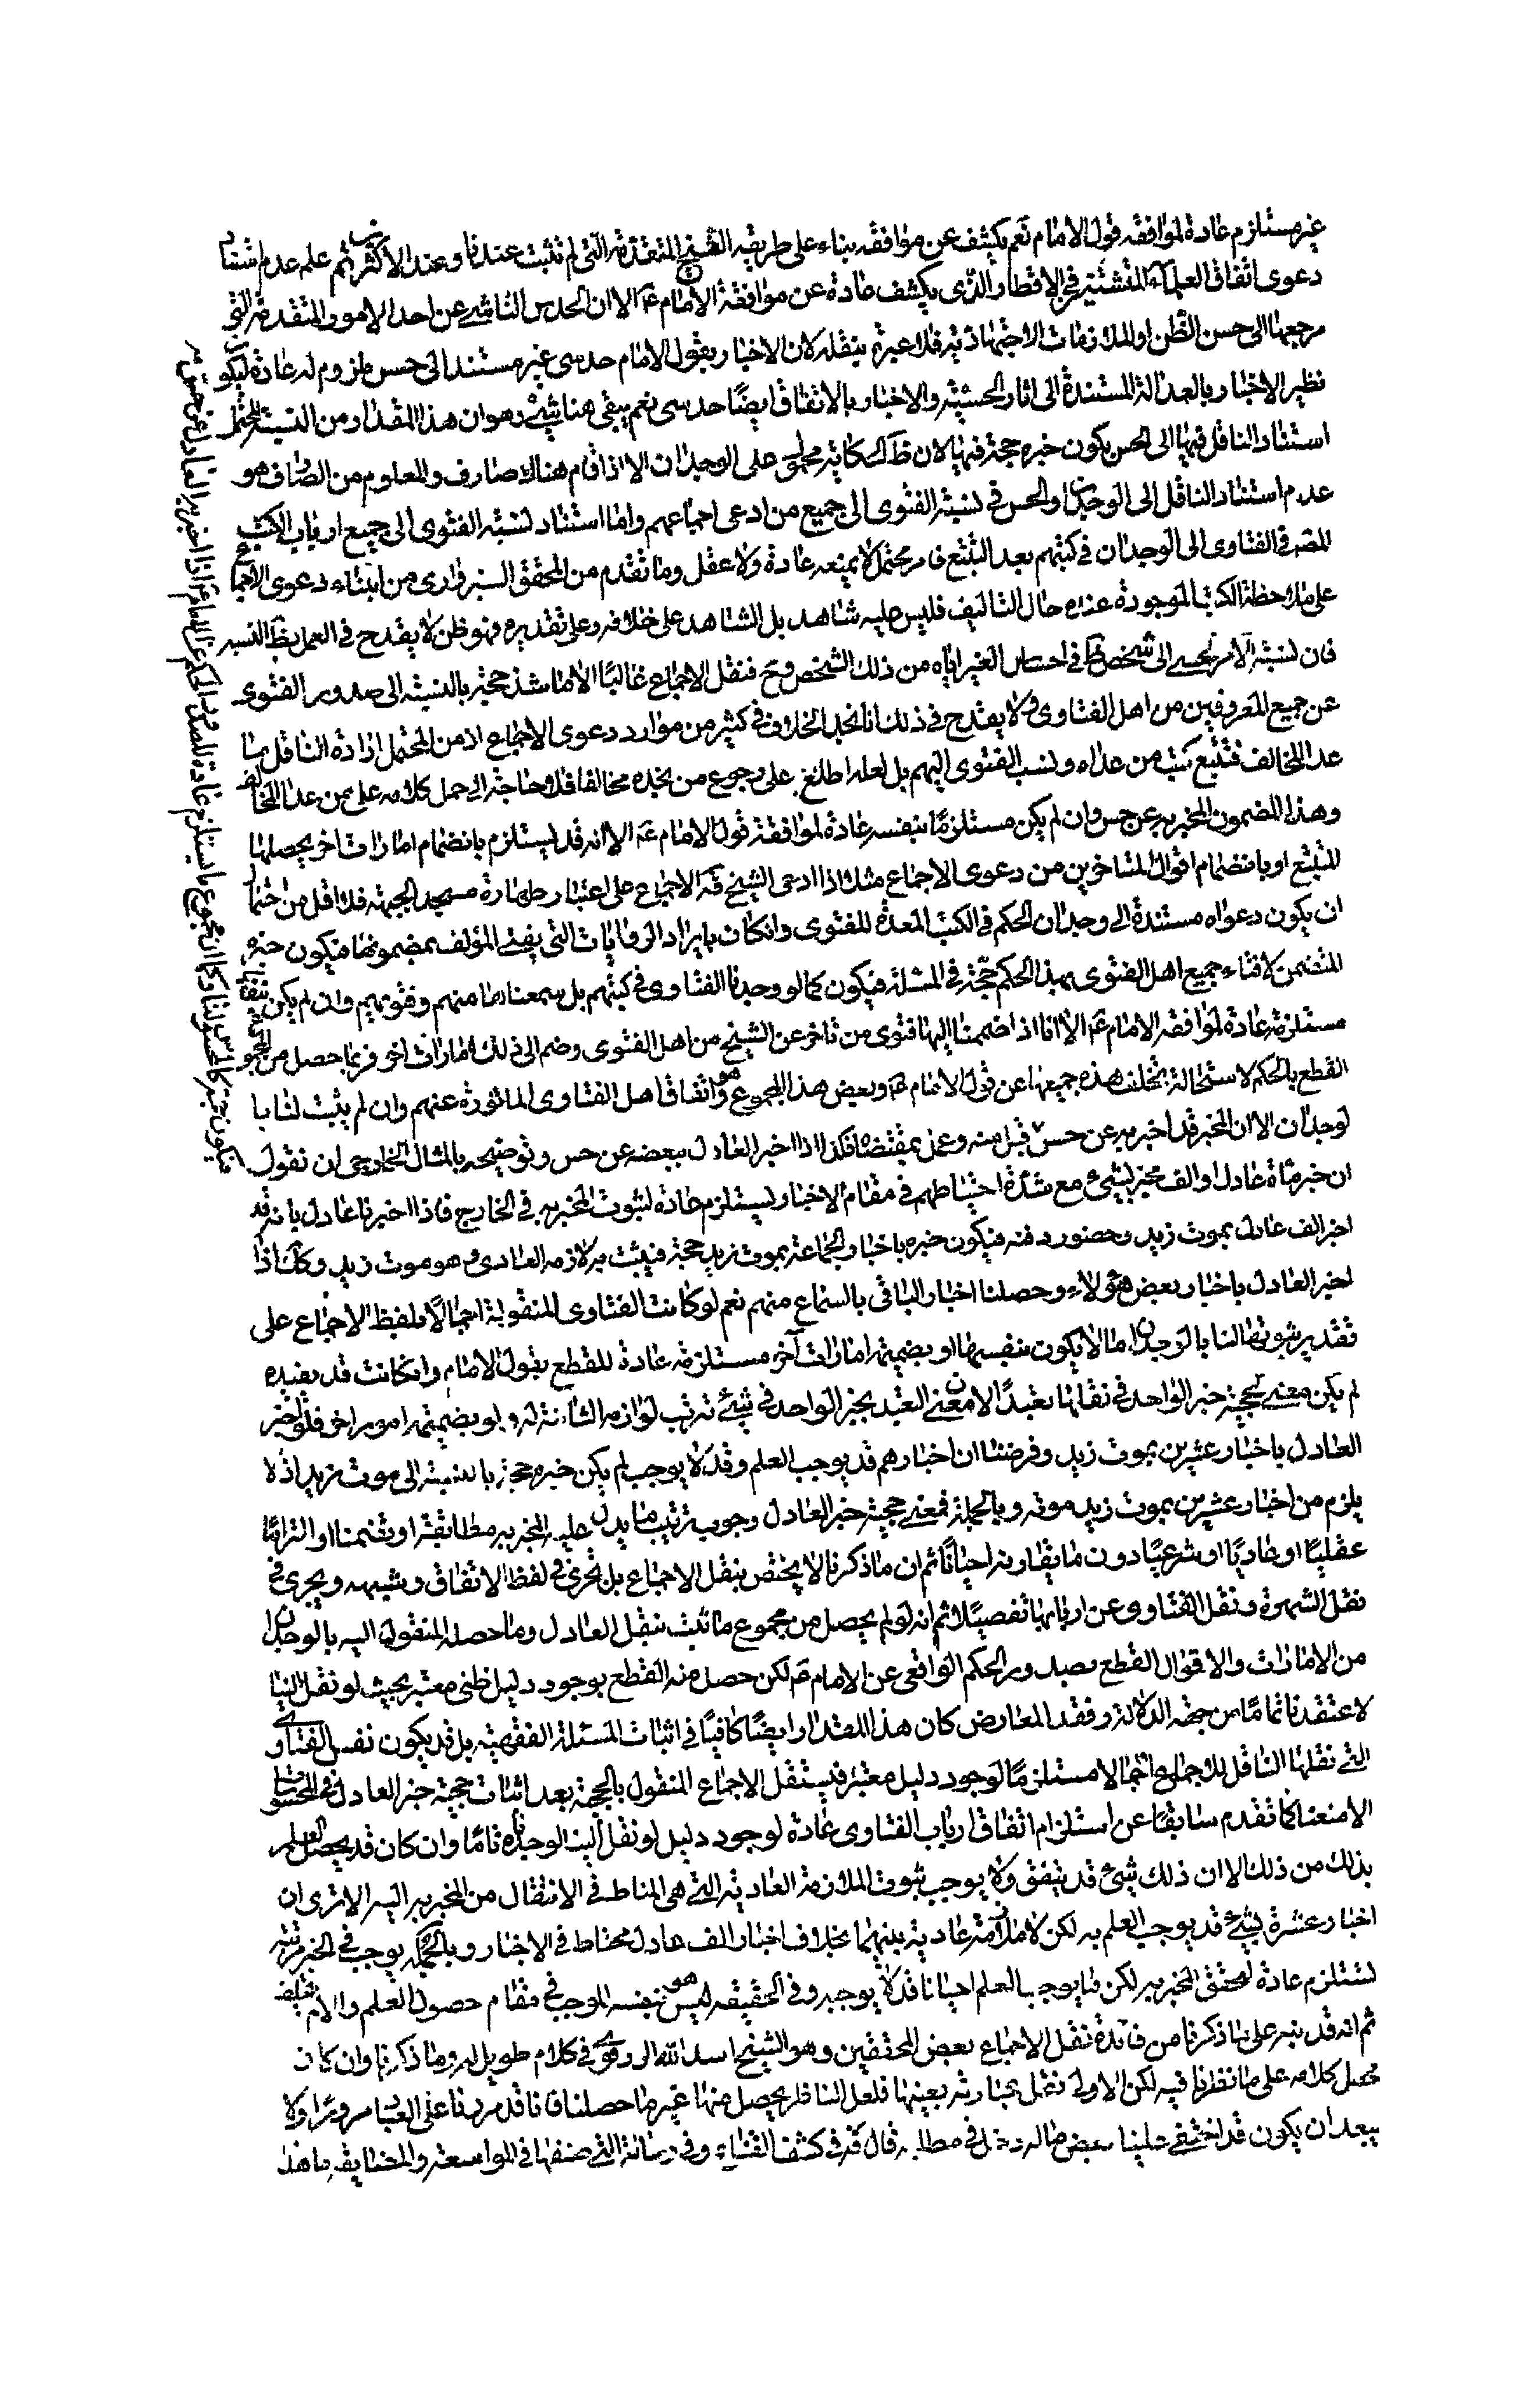 غير مستلزم عادة لموافقه قول الامام نعم يكشف عن موافقه بناء على طريقه الشيخ المتقدمة التى لم تثبت عندنا وعند الاكثر ثم علم عدم استناد
دعوى اتفاق العلماء المتشتتين فى الاقطار والذى يكشف عادة عن موافقة الامام ع الا ان الحدس الناشى عن احد الامور المتقدمة التى
مرجعها الى حسن الظن او الملازمات الاجتهادية فلا عبرة بنقله لان الاخبار بقول الامام حدسى غير مستند الى حس ملزوم له عادة ليكون
نظير الاخبار بالعدالة المستندة الى اثار الحسية والاخبار بالاتفاق ايضا حدسى نعم يبقى هنا شئ وهو ان هذا المقدار من النسبة المحتمل
استناد الناقل فيها الى الحس يكون خبره حجة فيها لان ظ الحكاية محمول على الوجدان الا اذا قام هناك صارف والمعلوم من الصارف هو
عدم استناد الناقل الى الوجدان والحس فى نسبة الفتوى الى جميع من ادعى اجماعهم واما استناد نسبة الفتوى الى جميع ارباب الكتب
المصنفة فى الفتاوى الى الوجدان فى كتبهم بعد التتبع فامر محتمل لا يمنعه عادة ولا عقل وما تقدم من المحقق السبزوارى من ابتناء دعوى الاجماع
على ملاحظة الكتب الموجودة عنده حال التاليف فليس عليه شاهد بل الشاهد على خلافه وعلى تقديره فهو ظن لا يقدح فى العمل بظ النسبه
فان نسبة الامر الحسى الى شخص ظ فى احساس الغير اياه من ذلك الشخص وح فنقل الاجماع غالبا الا ما شذ حجة بالنسبة الى صدور الفتوى
عن جميع المعروفين من اهل الفتاوى ولا يقدح فى ذلك انا نجد الخلاف فى كثير من موارد دعوى الاجماع اذ من المحتمل ارادة الناقل ما
عدا المخالف فتتبع كتب من عداه ونسب الفتوى اليهم بل لعله اطلع على رجوع من نجده مخالفا فلا حاجة الى حمل كلامه على من عدا المخالف
وهذا المضمون المخبر به عن حس وان لم يكن مستلزما بنفسه عادة لموافقة قول الامام ع الا انه قد يستلزم بانضمام امارات اخر يحصلها
المتتبع او بانضمام اقوال المتاخرين من دعوى الاجماع مثلا اذا ادعى الشيخ قده الاجماع على اعتبار طهارة مسجد الجبهة فلا اقل من احتمال
ان يكون دعواه مستندة الى وجدان الحكم فى الكتب المعدة للفتوى وان كان بايراد الروايات التى يفتى المؤلف بمضمونها فيكون خبره
المتضمن لافتاء جميع اهل الفتوى بهذا الحكم حجة فى المسئلة فيكون كما لو وجدنا الفتاوى فى كتبهم بل سمعناها منهم وفتويهم وان لم يكن بنفسها
مستلزمة عادة لموافقه الامام ع الا انا اذا ضممنا اليها فتوى من تاخر عن الشيخ من اهل الفتوى وضم الى ذلك امارات اخر فربما حصل من المجموع
القطع بالحكم لاستحالة تخلف هذه جميعها عن قول الامام ع وبعض هذا المجموع وهو اتفاق اهل الفتاوى الماثورة عنهم وان لم يثبت لنا با
لوجدان الا ان المخبر قد اخبر به عن حس قبل منه وعمل بمقتضاه فكذا اذا اخبر العادل ببعضه عن حس وتوضيحه بالمثال الخارجى ان نقول
ان خبر مأة عادل او الف مخبر بشئ مع شدة احتياطهم فى مقام الاخبار يستلزم عادة لثبوت المخبر به فى الخارج فاذا اخبرنا عادل بانه قد
اخبر الف عادل بموت زيد وحضور دفنه فيكون خبره باخبار الجماعة بموت زيد حجة فيثبت به لازمه العادى وهو موت زيد وكك اذا
اخبر العادل باخبار بعض هؤلاء وحصلنا اخبار الباقى بالسماع منهم نعم لو كانت الفتاوى المنقولة اجمالا بلفظ الاجماع على
تقدير ثبوتها لنا بالوجدان مما لا يكون بنفسها او بضميمة امارات آخر مستلزمة عادة للقطع بقول الامام وان كانت قد يفيده
لم يكن معنى لحجية خبر الواحد فى نقلها تعبدا لان معنى التعبد بخبر الواحد فى شئ ترتب لوازمه الثابتة له ولو بضميمة امور اخر فلو اخبر
العادل باخبار عشرين بموت زيد وفرضنا ان اخبارهم قد يوجب العلم وقد لا يوجب لم يكن خبره حجة بالنسبة الى موت زيد اذ لا
يلزم من اخبار عشرين بموت زيد موته وبالجملة فمعنى حجية خبر العادل وجوب ترتيب ما يدل عليه المخبر به مطابقة او تضمنا او التزاما
عقليا او عاديا او شرعيا دون ما يقارنه احيانا ثم ان ما ذكرنا لا يختص بنقل الاجماع بل يجرى فى لفظ الاتفاق وشبهه ويجرى فى
نقل الشهرة ونقل الفتاوى عن اربابها تفصيلا ثم انه لو لم يحصل من مجموع ما ثبت بنقل العادل وما حصله المنقول اليه بالوجدان
من الامارات والاقوال القطع بصدور الحكم الواقعى عن الامام ع لكن حصل منه القطع بوجود دليل ظنى معتبر بحيث لو نقل الينا
لاعتقدناه تاما من جهة الدلالة وفقد المعارض كان هذا المقدار ايضا كافيا فى اثبات المسئلة الفقهية بل قد يكون نفس الفتاوى
التى نقلها الناقل للاجماع اجمالا مستلزما لوجود دليل معتبر فيستقل الاجماع المنقول بالحجية بعد اثبات حجية خبر العادل فى المحسوسات
الا منعنا كما تقدم سابقا عن استلزام اتفاق ارباب الفتاوى عادة لوجود دليل لو نقل الينا لوجدناه تاما وان كان قد يحصل العلم
بذلك من ذلك الا ان ذلك شئ قد يتفق ولا يوجب ثبوت الملازمة العادية التى هى المناط فى الانتقال من المخبر به اليه الا ترى ان
اخبار عشرة بشئ قد يوجب العلم به لكن لا ملازمة عادية بينهما بخلاف اخبار الف عادل محتاط فى الاخبار وبالجملة يوجب فى الخبر مرتبة
تستلزم عادة لتحقق المخبر به لكن ما يوجب العلم احيانا قد لا يوجبه وفى الحقيقه ليس هو بنفسه الموجب فى مقام حصول العلم والا لم يتخلف
ثم انه قد نبه على ما ذكرنا من فائدة نقل الاجماع بعض المحققين وهو الشيخ اسد الله فى كلام طويل له وما ذكرنا وان كان
محصل كلامه على ما نظرنا فيه لكن الاولى نقل عبارته بعينها فلعل الناظر يحصل منها غير ما حصلنا فانا قد مررنا على العبارة مرورا ولا
يبعد ان يكون قد اختفى علينا بعض ماله دخل فى مطالبه قال قده فى كشف القناع وفى رسالته التى صنفها فى المواسعة والمضايقه ما هذا